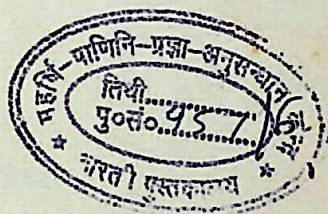 महर्षि-पाणिनि-प्रज्ञा-अनुसन्धान
तिथी..............
पु०सं० 957
भारती पुस्तकालय